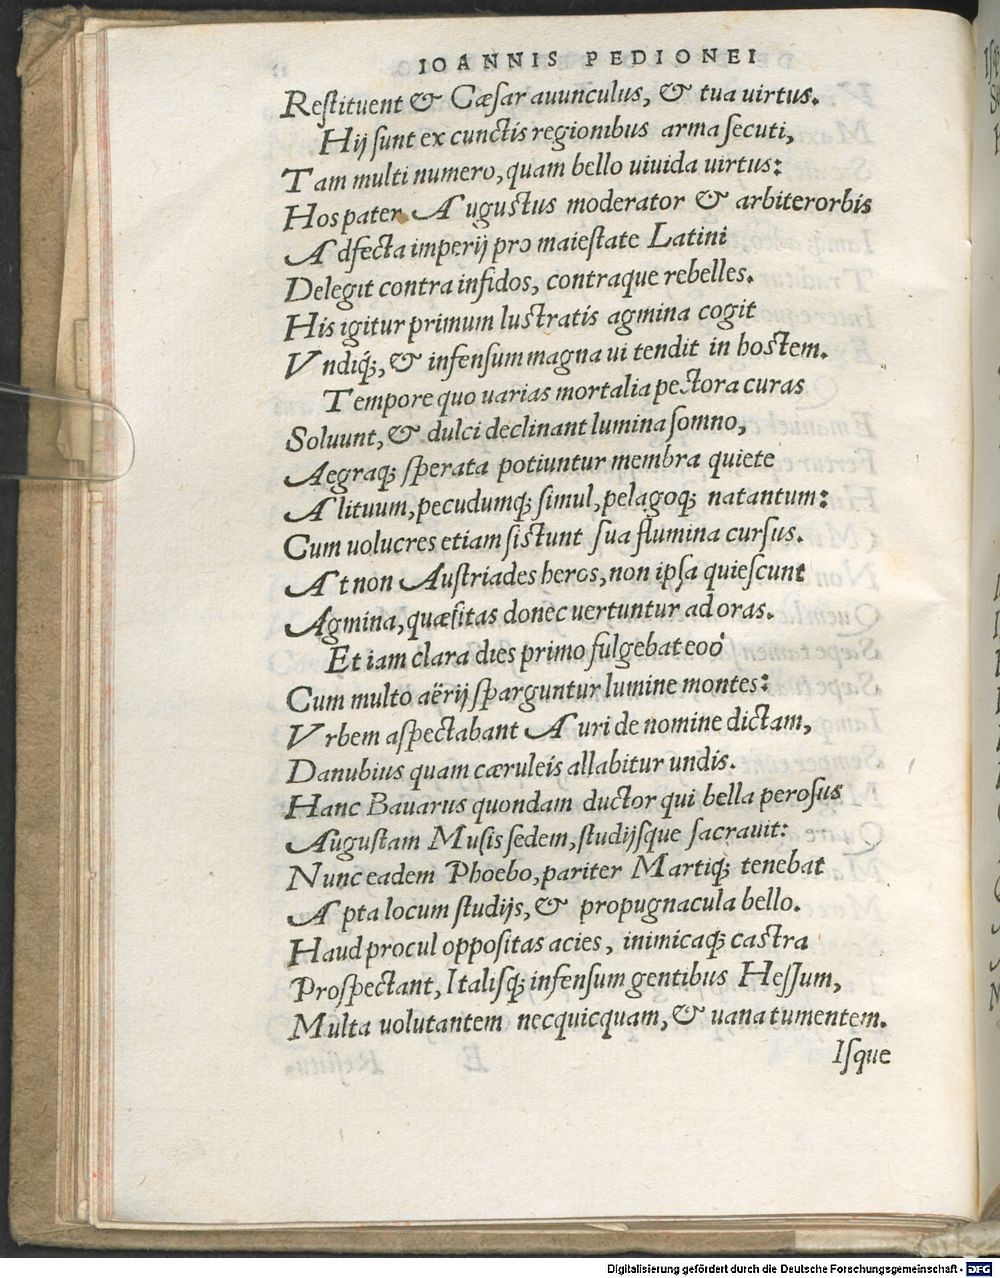 IOANNIS PEDIONEI
Reſtituent & Cæſar auunculus, & tua uirtus.
Hij ſunt ex cunctis regionibus arma ſecuti,
Tam multi numero, quam bello uiuida uirtus:
Hos pater Auguſtus moderator & arbiter orbis
Adfecta imperij pro maieſtate Latini
Delegit contra infidos, contraque rebelles.
His igitur primum luſtratis agmina cogit
Vndiq;, & infenſum magna ui tendit in hoſtem.
Tempore quo uarias mortalia pectora curas
Soluunt, & dulci declinant lumina ſomno,
Aegraq; ſperata potiuntur membra quiete
Alituum, pecudumq; ſimul, pelagoq; natantum:
Cum uolucres etiam ſiſtunt ſua flumina curſus.
At non Auſtriades heros, non ipſa quieſcunt
Agmina, quæſitas donec uertuntur ad oras.
Et iam clara dies primo fulgebat eoo
Cum multo aërij ſparguntur lumine montes:
Vrbem aſpectabant Auri de nomine dictam,
Danubius quam cæruleis allabitur undis.
Hanc Bauarus quondam ductor qui bella peroſus
Auguſtam Muſis ſedem, ſtudijſque ſacrauit:
Nunc eadem Phoebo, pariter Martiq; tenebat
Apta locum ſtudijs, & propugnacula bello.
Haud procul oppoſitas acies, inimicaq; caſtra
Proſpectant, Italiſq; infenſum gentibus Heſſum,
Multa uolutantem necquicquam, & uana tumentem.
Iſque
Digitalisierung gefördert durch die Deutsche Forschungsgemeinschaft - DFG